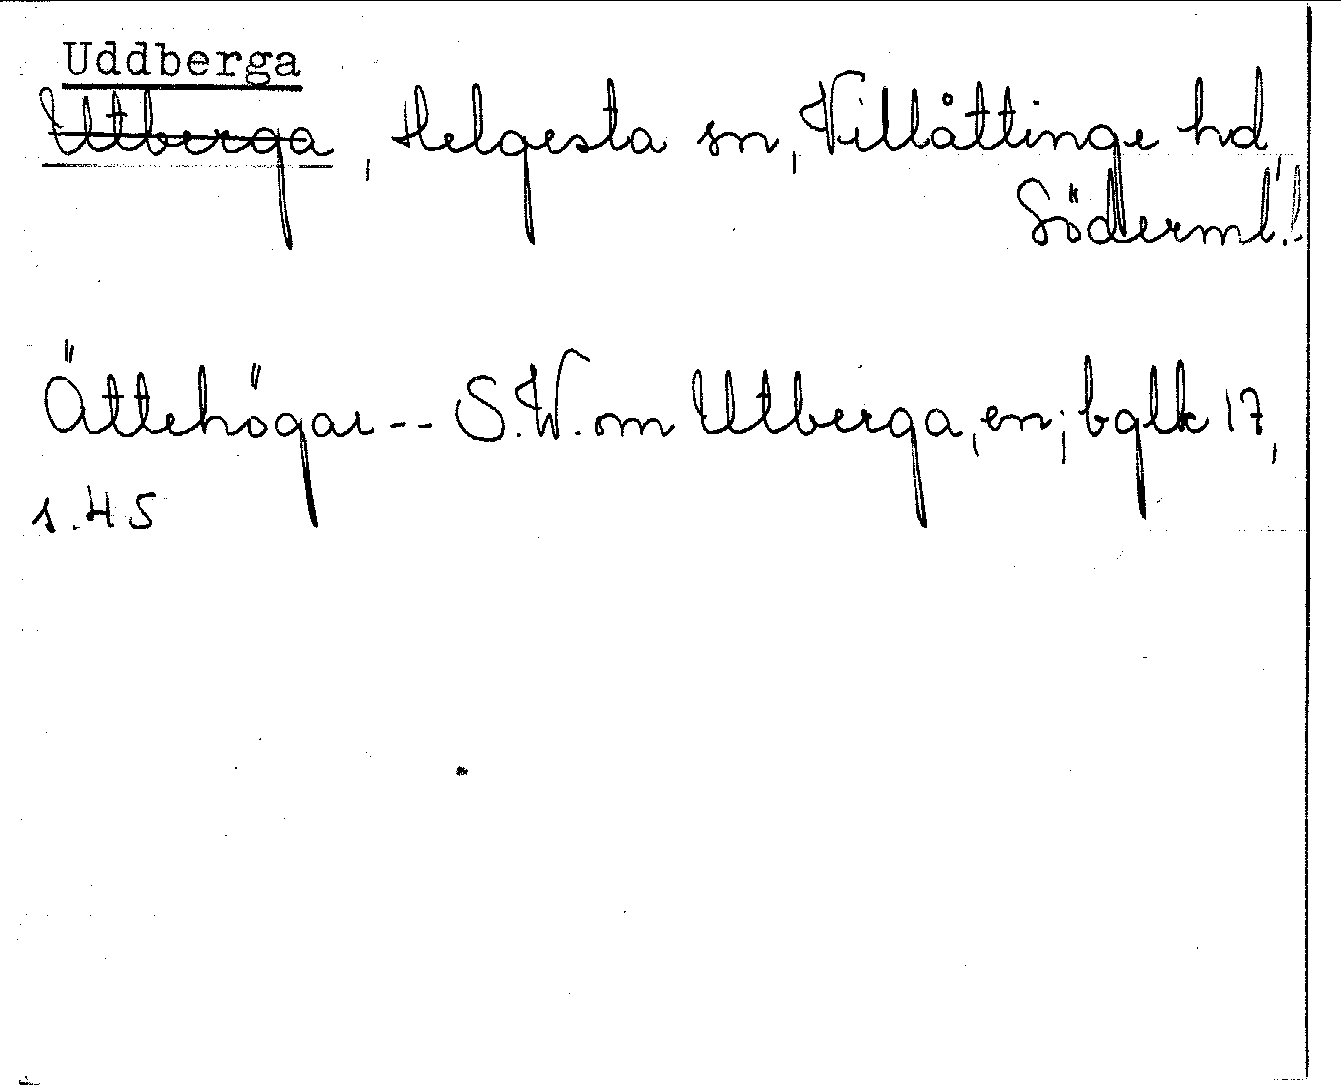 Uddberga
Utberga, Helgesta sn, Villåttinge hd,
Söderml.!
Ättehögar -- S.W. om Utberga, en; bglk 17,
s. 45